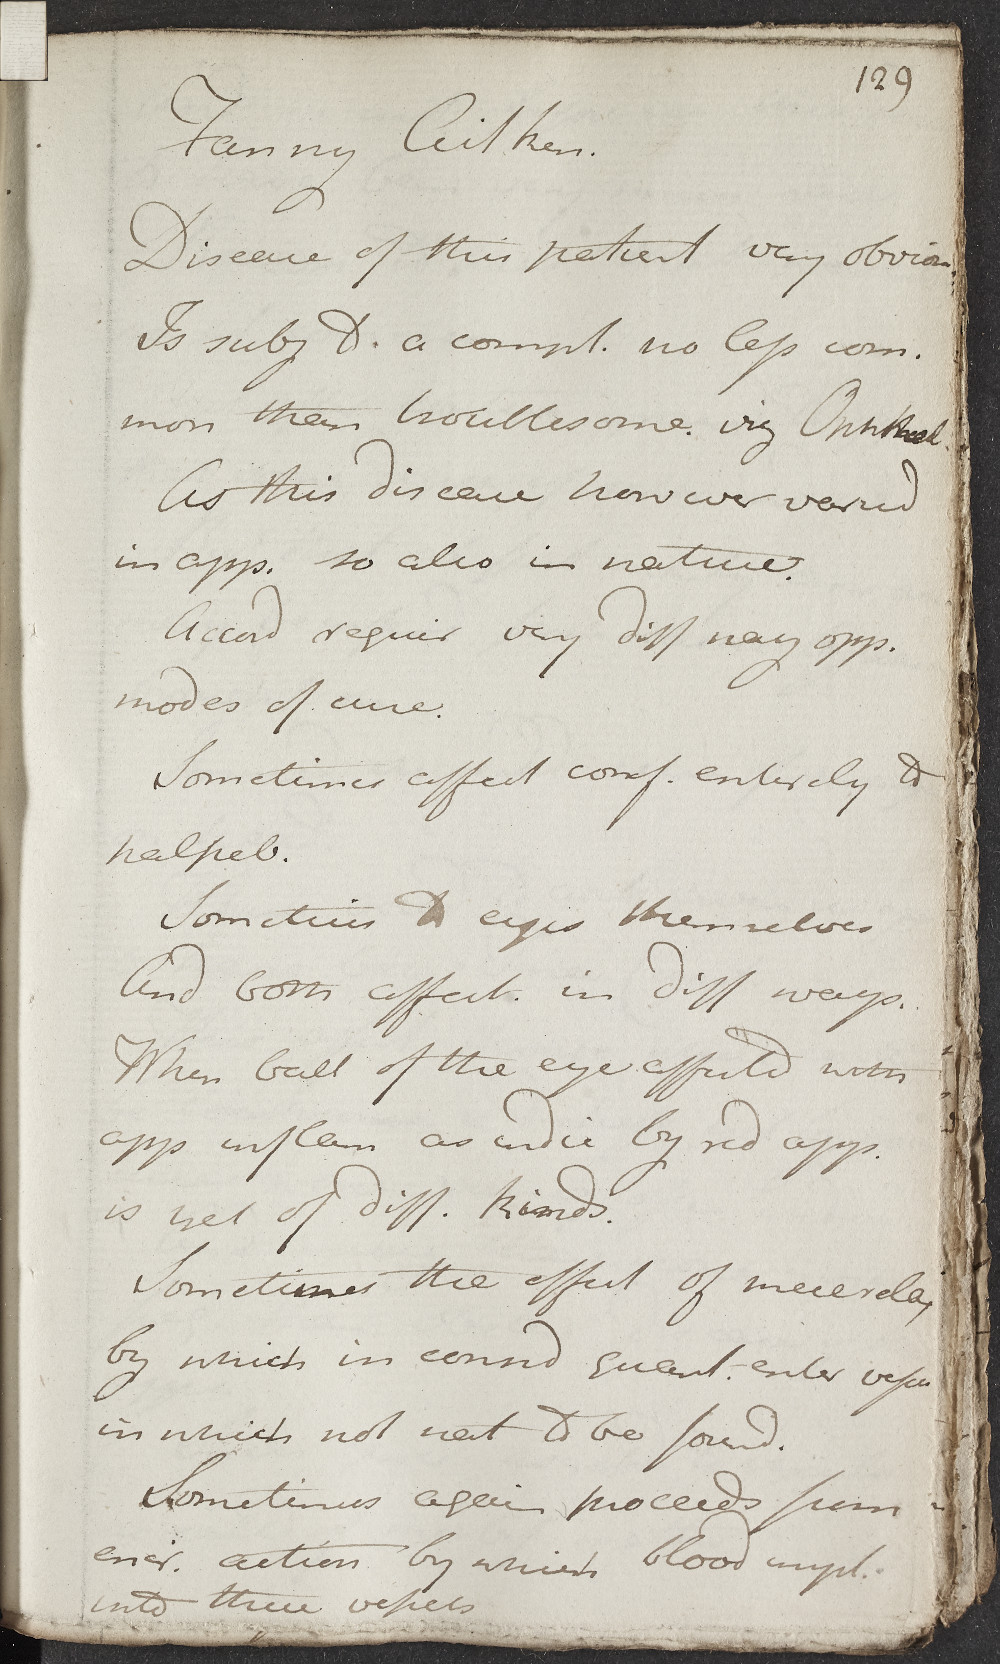 129
Fanny Aitken.
Disease of this patient very obvious
Is subj to. a compl. no less com.
mon than troublesome. viz Ophthal.
As this disease however varied
in app. so also in nature.
Accord requir very diff nay opp.
modes of cure.
Sometimes affect conf. entirely to
palpeb.
Sometimes to eyes themselves
And both affect. in diff ways.
When ball of the eye affected with
app inflam as indic by red app.
is yet of diff. kinds.
Sometimes the effect of mere relax
by which in consid quant. enter vess
in which not nat to be found.
Sometimes again proceeds from
action by which blood impel.
into these vessels